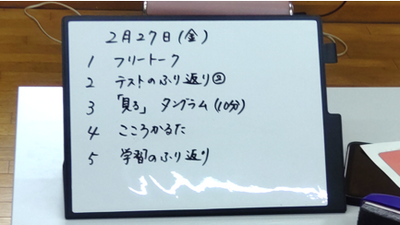 2月27日(金)
1 フリートーク
2 テストのふり返り②
3 「見る」 タングラム(10分)
4 こころかるた
5 学習のふり返り